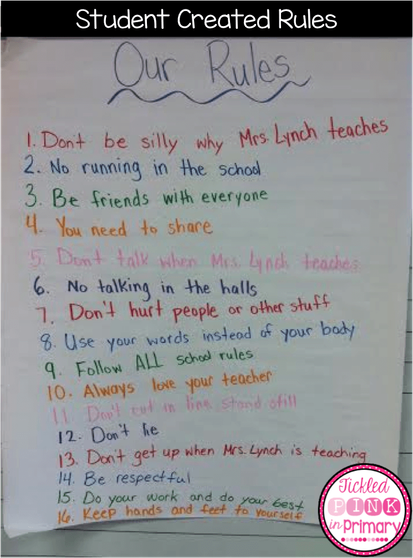 Student Created Rules
Our Rules
1. Don't be silly why Mrs. Lynch teaches
2. No running in the school
3. Be friends with everyone
4. You need to share
5. Don't talk when Mrs. Lynch teaches
6. No talking in the halls
7. Don't hurt people or other stuff
8. Use your words instead of your body
9. Follow ALL school rules
10. Always love your teacher
11. Don't cut in line, stand still
12. Don't lie
13. Don't get up when Mrs. Lynch is teaching
14. Be respectful
15. Do your work and do your best
16. Keep hands and feet to yourself
Tickled
PINK
in Primary